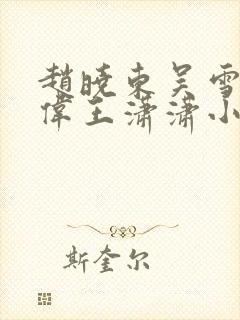 趙曉东吴雪
偉王潇潇小
斯奎尔